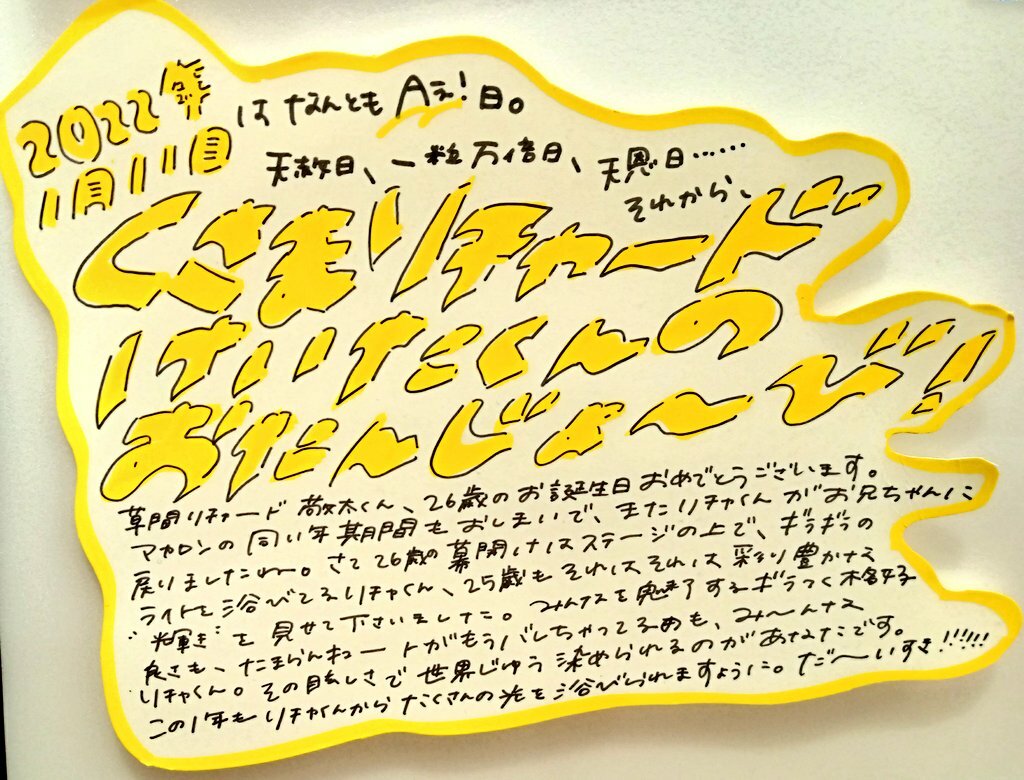 2022年
11月11日
は なんとも Aぇ!日。
天赦日、一粒万倍日、天恩日……
それから、
くさまリチャード
けいたくんの
おたんじょ〜び!
草間リチャード敬太くん、26歳のお誕生日おめでとうございます。
マカロンの同い年期間もおしまいで、またリチャくんがお兄ちゃんに
戻りましたね。さて26歳の幕開けはステージの上で、ギラギラの
ライトを浴びてるリチャくん、25歳もそれはそれは彩り豊かな
"輝き"を見せて下さいました。みんなを魅了するギラつく格好
良さも、たまらんキュートがもうバレちゃってるのも、み〜んな
リチャくん。その眩しさで世界じゅう染められるのがあなたです。
この1年もリチャくんからたくさんの光を浴びられますように。だ〜いすき!!!!!!